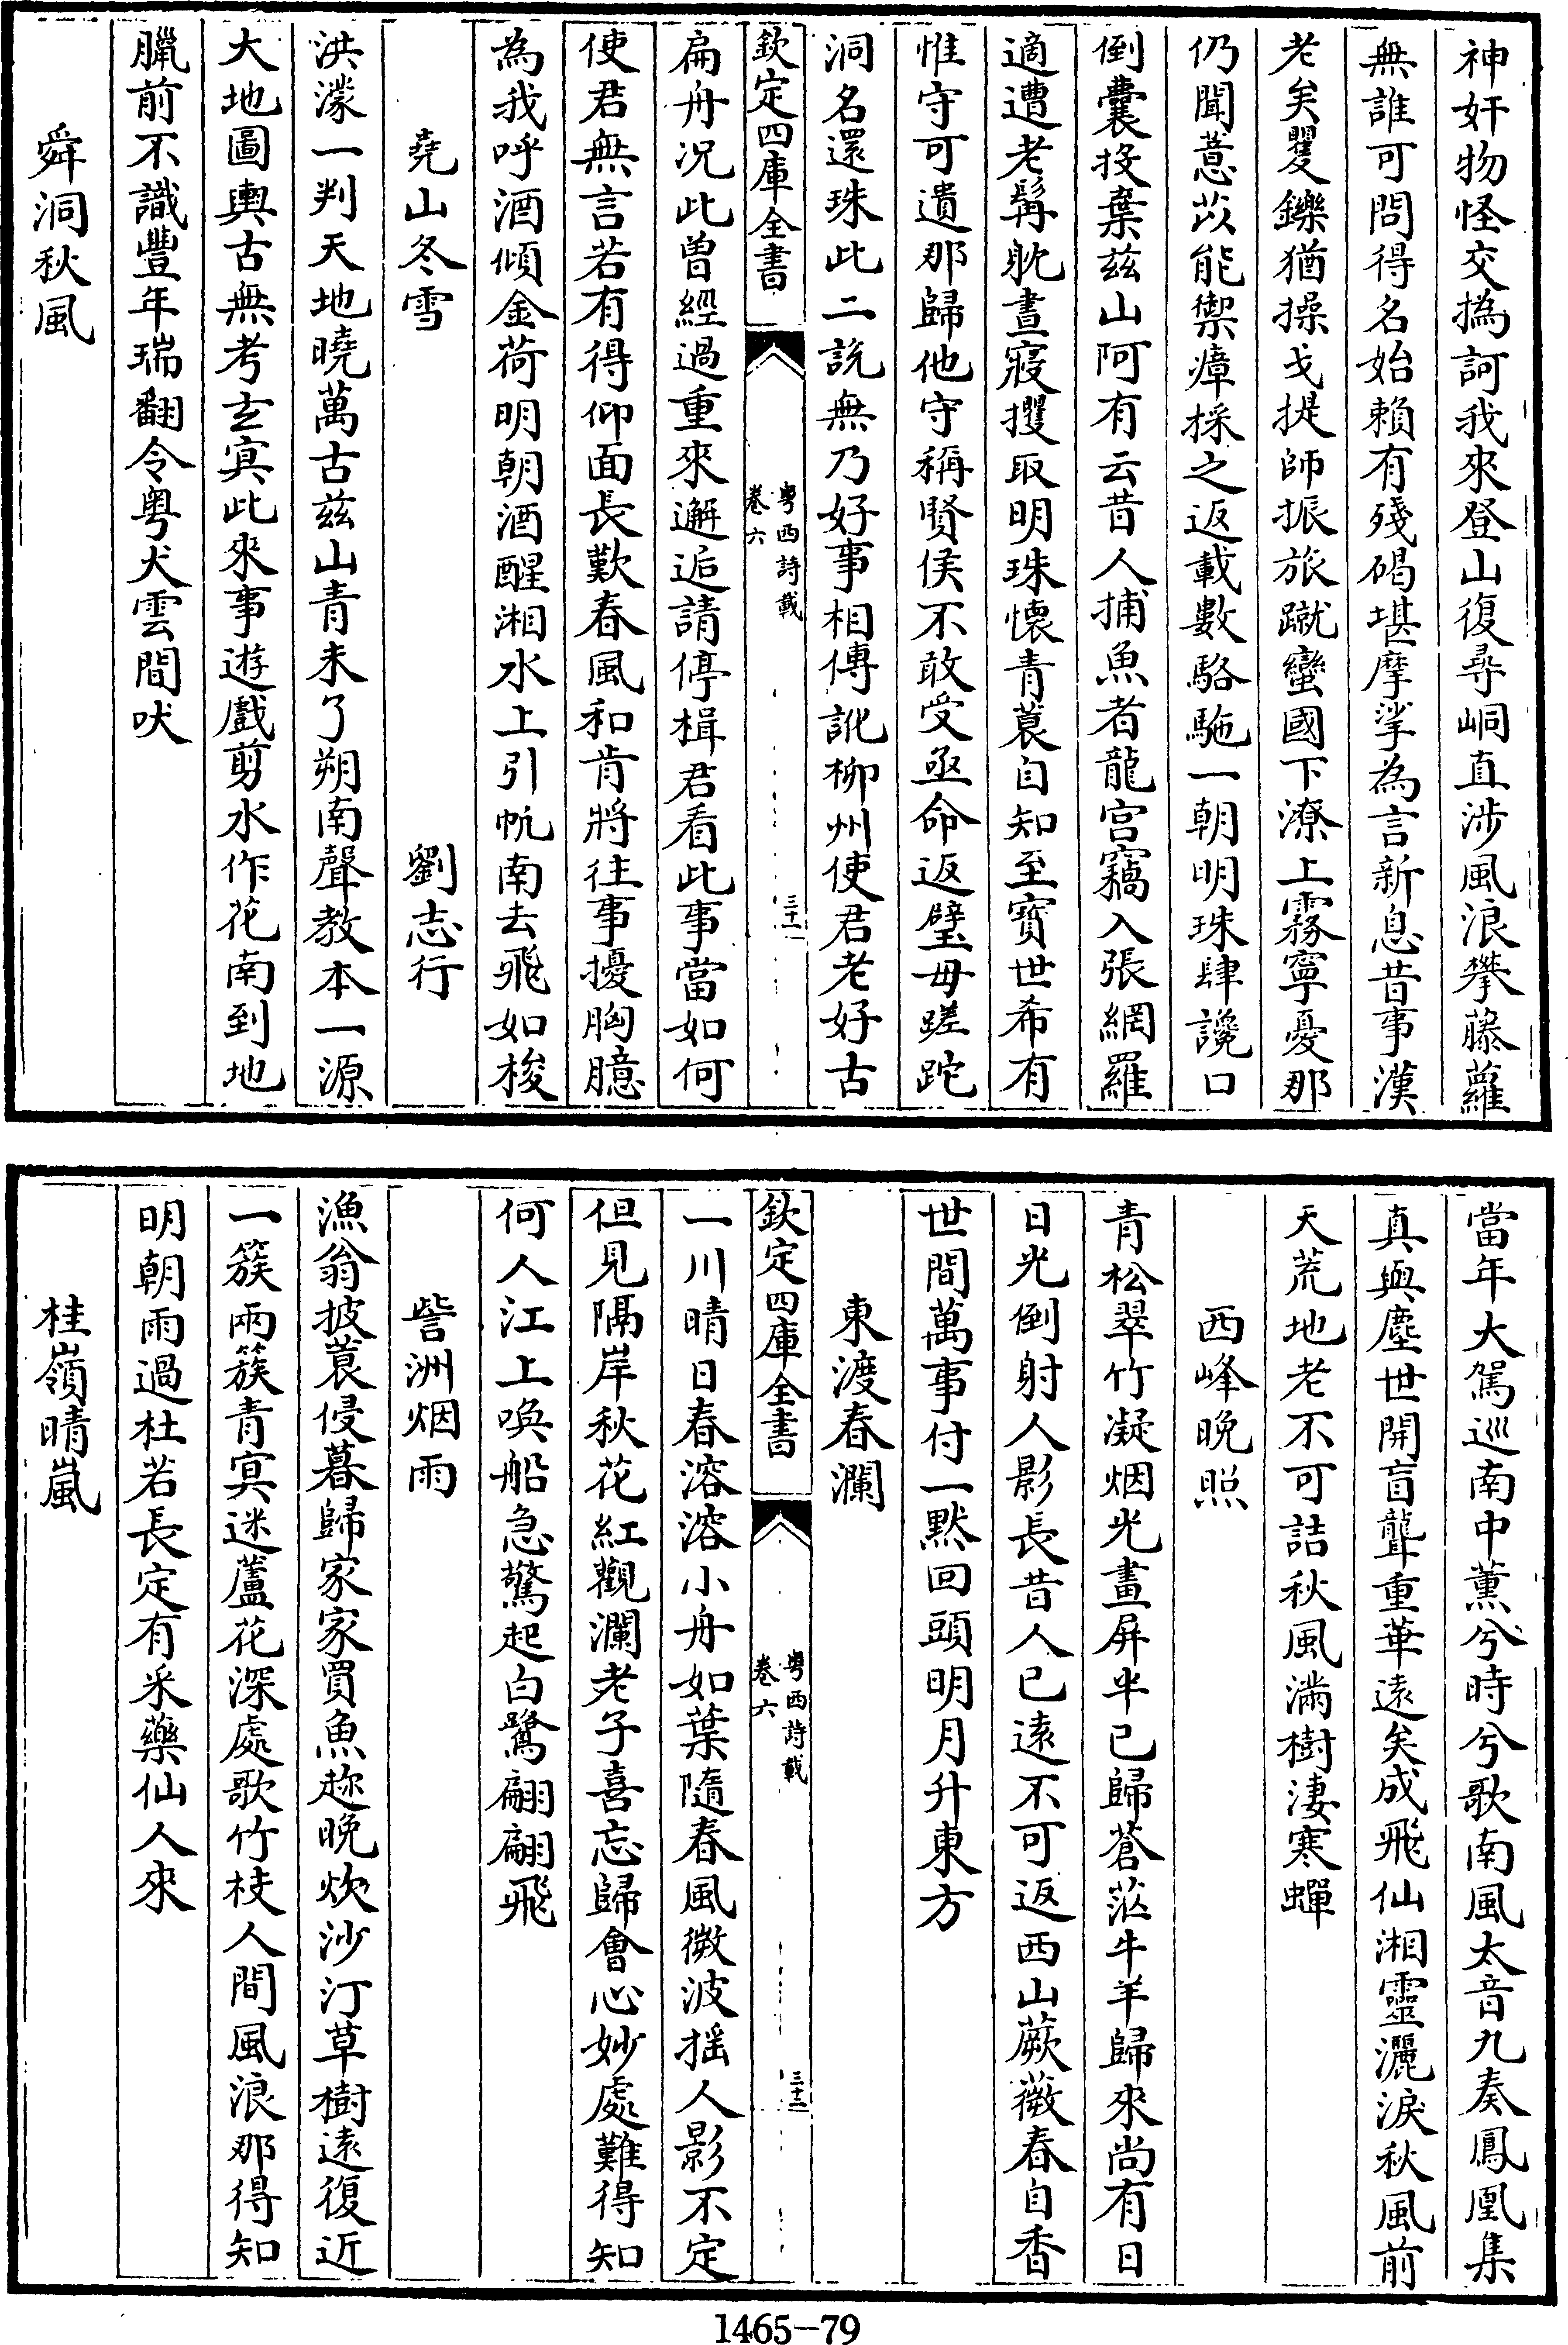 神奸物怪交撝訶我來登山復尋峒直涉風浪攀藤蘿
無誰可問得名始賴有殘碣堪摩挲為言新息昔事漢
老矣矍鑠猶操戈提師振旅蹴蠻國下潦上霧寧憂那
仍聞薏苡能禦瘴採之返載數駱駞一朝明珠肆讒口
倒囊投棄兹山阿有云昔人捕魚者龍宫竊入張網羅
適遭老髯躭晝寢攫取明珠懷青蓑自知至寳世希有
惟守可遺那歸他守稱賢侯不敢受亟命返璧毋蹉跎
洞名還珠此二説無乃好事相傳訛柳州使君老好古
欽定四庫全書
粤西詩載
卷六
三十一
扁舟况此曽經過重來邂逅請停楫君看此事當如何
使君無言若有得仰面長歎春風和肯將往事擾胸臆
為我呼酒傾金荷明朝酒醒湘水上引帆南去飛如梭
堯山冬雪 劉志行
洪濛一判天地曉萬古兹山青未了朔南聲教本一源
大地圖輿古無考玄冥此來事遊戲剪水作花南到地
臘前不識豐年瑞翻令粤犬雲間吠
舜洞秋風
當年大駕巡南中薰兮時兮歌南風太音九奏鳳凰集
真與塵世開盲聾重華遠矣成飛仙湘靈灑淚秋風前
天荒地老不可詰秋風滿樹淒寒蟬
西峰晚照
青松翠竹凝烟光畫屏半已歸蒼茫牛羊歸來尚有日
日光倒射人影長昔人已遠不可返西山蕨薇春自香
世間萬事付一默回頭明月升東方
東渡春瀾
欽定四庫全書
粤西詩載
卷六
三十二
一川晴日春溶溶小舟如葉隨春風微波揺人影不定
但見隔岸秋花紅觀瀾老子喜忘歸會心妙處難得知
何人江上喚船急驚起白鷺翩翩飛
訾洲烟雨
漁翁披蓑侵暮歸家家買魚趂晚炊沙汀草樹遠復近
一簇兩簇青冥迷蘆花深處歌竹枝人間風浪那得知
明朝雨過杜若長定有采藥仙人來
桂嶺晴嵐
1465-79